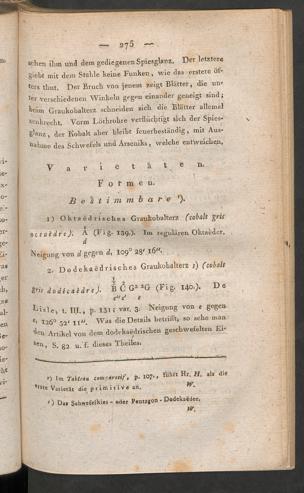 — 275 —
schen ihm und dem gediegenen Spiesglanz. Der letztere
giebt mit dem Stahle keine Funken, wie das erstere öf-
ters thut. Der Bruch von jenem zeigt Blätter, die un-
ter verschiedenen Winkeln gegen einander geneigt sind;
beim Graukobalterz schneiden sich die Blätter allemal
senkrecht. Vorm Löthrohre verflüchtigt sich der Spies-
glanz, der Kobalt aber bleibt feuerbeständig, mit Aus-
nahme des Schwefels und Arseniks, welche entweichen.
Varietäten.
Formen.
Bestimmbare ʳ).
1) Oktaëdrisches Graukobalterz (cobalt gris
octaèdre). A (Fig. 139.). Im regulären Oktaëder.
d
Neigung von d gegen d, 109° 28' 16".
2. Dodekaëdrisches Graukobalterz s) (cobalt
gris dodécaèdre). B Ć G² ²G (Fig. 140.). De
e'' e' e
Lisle, t. III., p. 131; var. 3. Neigung von e gegen
e, 126° 52' 11". Was die Details betrifft, so sehe man
den Artikel vom dodekaëdrischen geschwefelten Ei-
sen, S. 82 u. f. dieses Theiles.
r) Im Tableau comparatif, p. 107., führt Hr. H. als die
erste Varietät die primitive an. W.
s) Das Schwefelkies- oder Pentagon-Dodekaëder.
W.